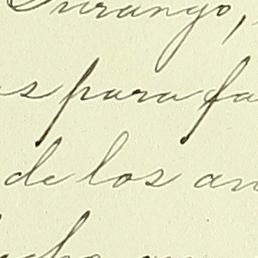 Durango,
s para fa
de los an